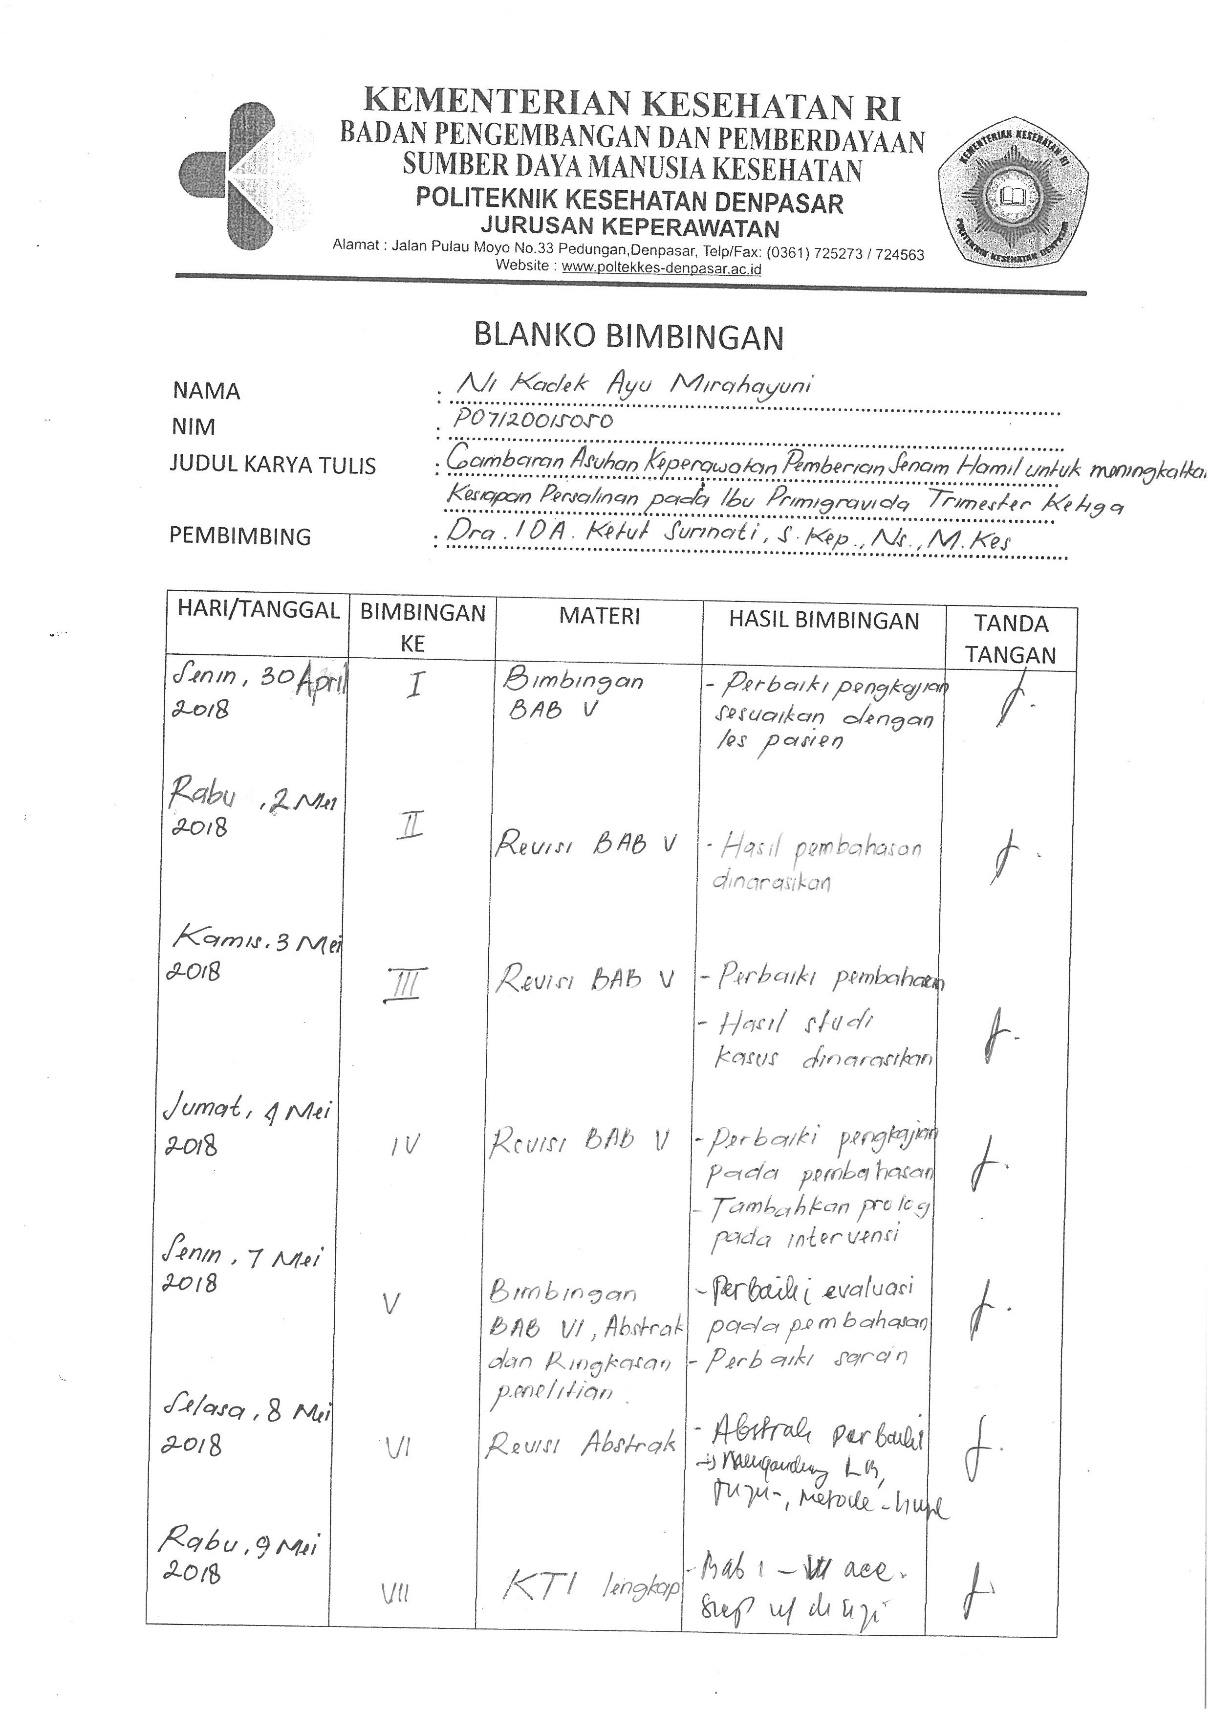 KEMENTERIAN KESEHATAN RI
BADAN PENGEMBANGAN DAN PEMBERDAYAAN
SUMBER DAYA MANUSIA KESEHATAN
POLITEKNIK KESEHATAN DENPASAR
JURUSAN KEPERAWATAN
Alamat : Jalan Pulau Moyo No.33 Pedungan,Denpasar, Telp/Fax: (0361) 725273 / 724563
Website : www.poltekkes-denpasar.ac.id
KEMENTERIAN KESEHATAN RI
POLITEKNIK KESEHATAN DENPASAR
BLANKO BIMBINGAN
NAMA : Ni Kadek Ayu Mirahayuni
NIM : P07120015050
JUDUL KARYA TULIS : Gambaran Asuhan Keperawatan Pemberian Senam Hamil untuk meningkatka
Kesiapan Persalinan pada Ibu Primigravida Trimester Ketiga
PEMBIMBING : Dra. IDA. Ketut Surinati, S.Kep., Ns., M.Kes
HARI/TANGGAL BIMBINGAN KE MATERI HASIL BIMBINGAN TANDA TANGAN
Senin, 30 April 2018 I Bimbingan BAB V - Perbaiki pengkajian
sesuaikan dengan
les pasien
Rabu, 2 Mei 2018 II Revisi BAB V - Hasil pembahasan
dinarasikan
Kamis, 3 Mei 2018 III Revisi BAB V - Perbaiki pembahasan
- Hasil studi
kasus dinarasikan
Jumat, 4 Mei 2018 IV Revisi BAB V - Perbaiki pengkajian
pada pembahasan
- Tambahkan prolog
pada intervensi
Senin, 7 Mei 2018 V Bimbingan BAB VI, Abstrak dan Ringkasan penelitian - Perbaiki evaluasi
pada pembahasan
- Perbaiki saran
Selasa, 8 Mei 2018 VI Revisi Abstrak - Abstrak perbaiki
→ Mengandung LB,
Metode
Rabu, 9 Mei 2018 VII KTI lengkap - Bab I – VI acc.
Siap u/ di uji